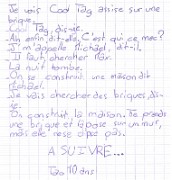 Je vois Cool Tag assise sur une
brique.
- Cool Tag, dis-je.
- Ah enfin, dit-elle. C'est qui ce mec?
- J'm'appelle Michael, dit-il.
- Il faut chercher Max.
La nuit tombe.
- On se construit une maison dit
Michael.
- Je vais chercher des briques, dis-
je.
On construit la maison. Je prends
une brique et la pose sur un mur,
mais elle reste pas.
A SUIVRE...
10 ans